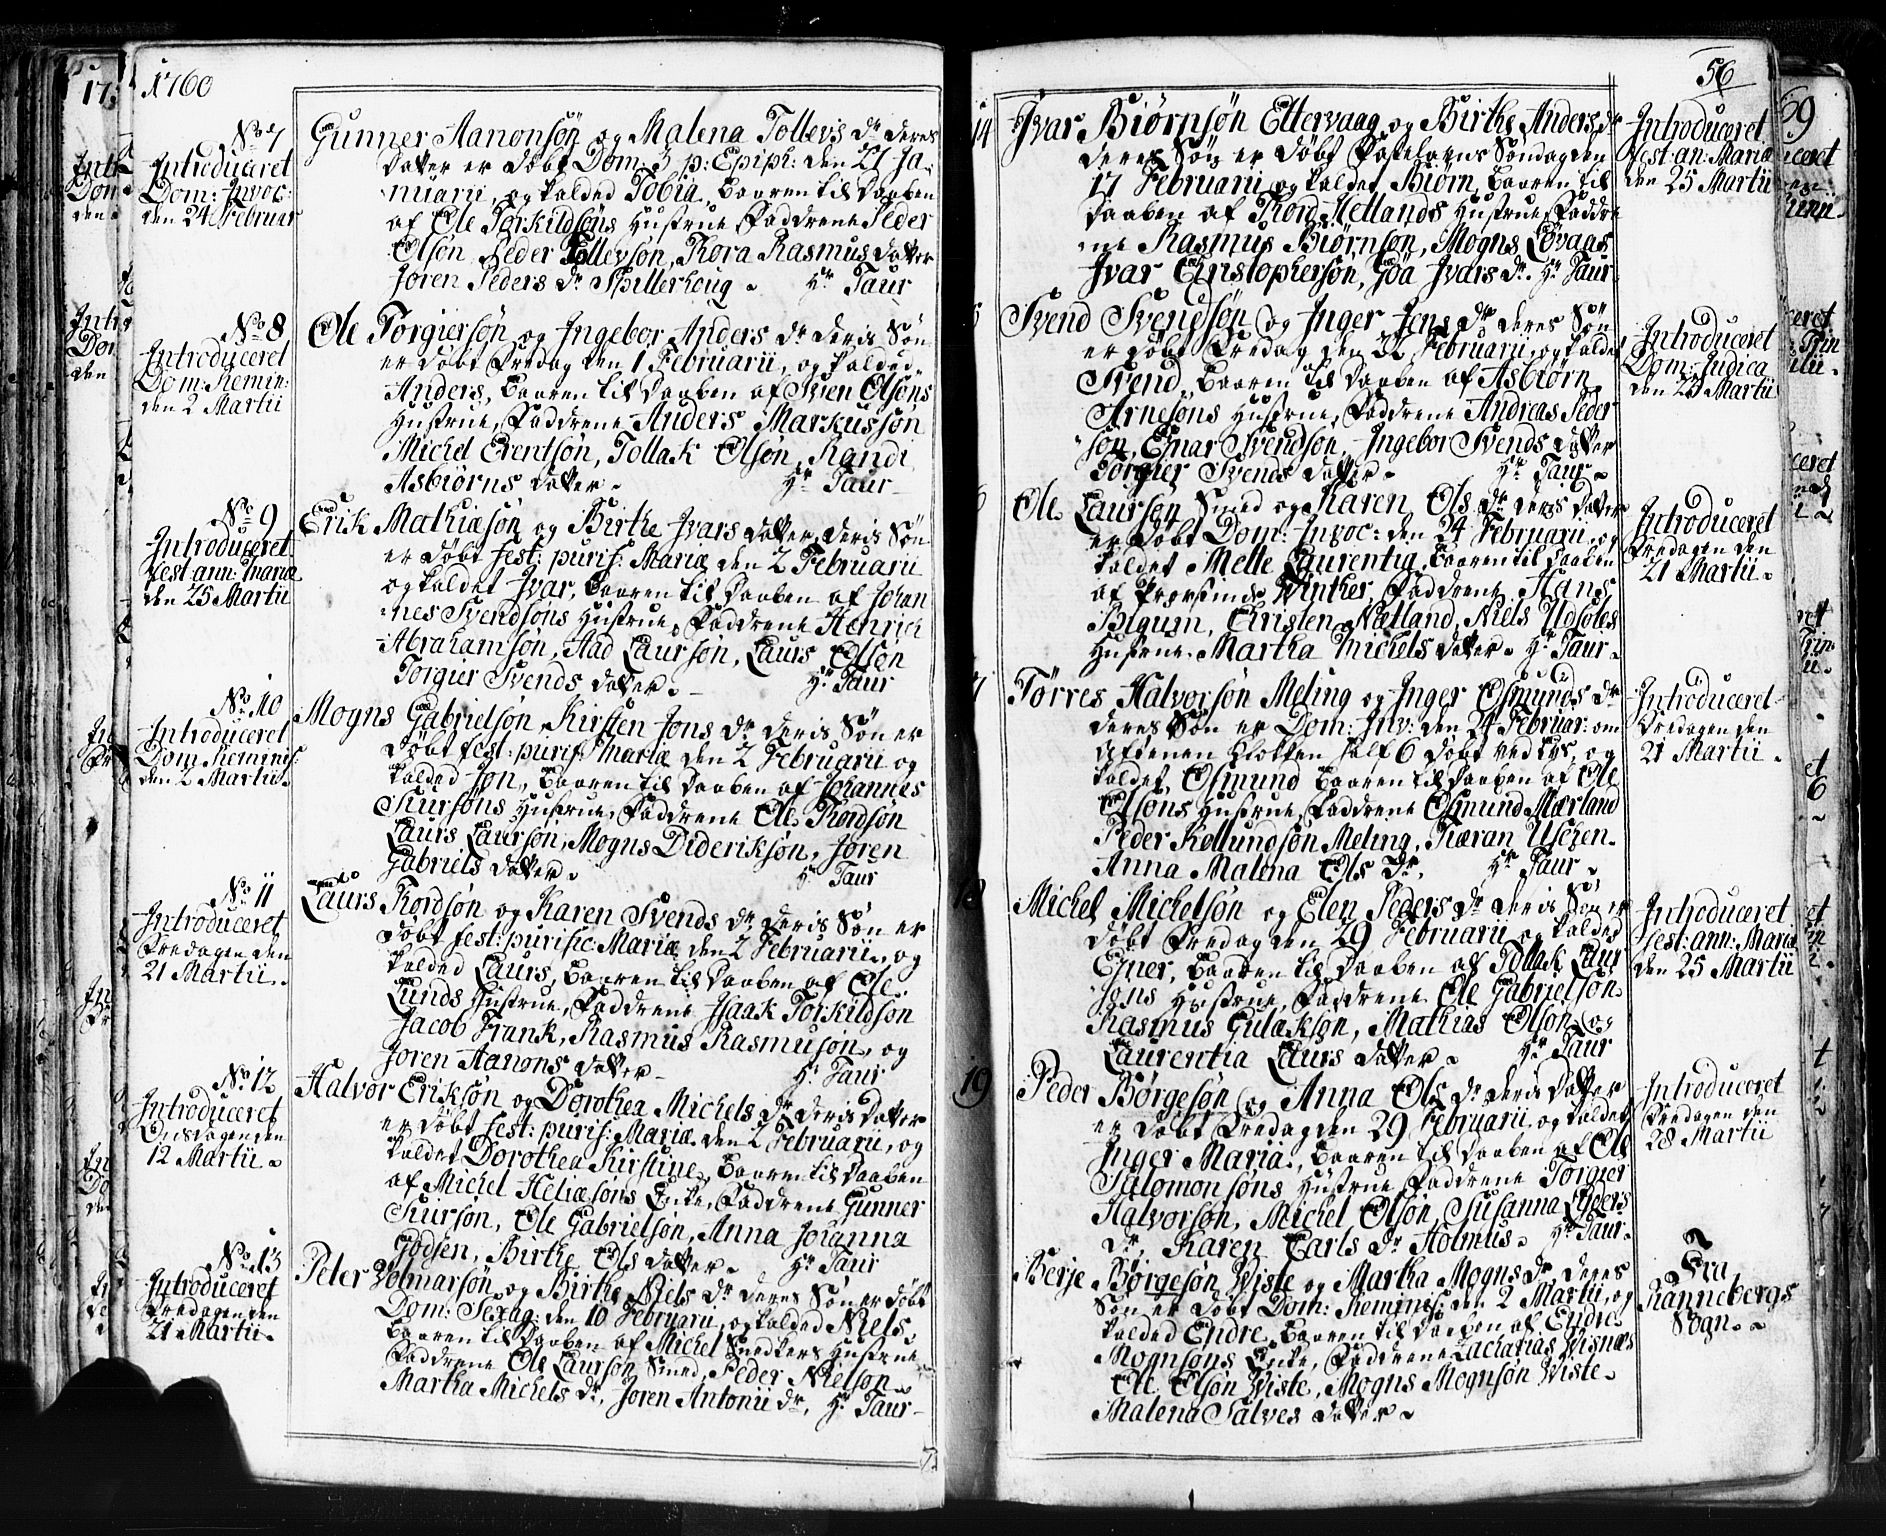 1760
No 7
Introduceret
Dom: Invoc:
den 24 Februar
Gunner Aanonsøn og Malena Tollevs dr deres
Datter er døbt Dom: 3 p: Epiph: den 27 Ja-
nuarii, og kalded Tobia, baaren til Daaben
af Ole Torkildsøns Hustrue, Faddrene Peder
Olsøn, Peder Tollevsøn, Thora Rasmus datter
Joren Peders dr Spillerhoug. Hr Taur
No 8
Introduceret
Dom: Remin:
den 2 Martii
Ole Torgiersøn og Ingebor Anders dr deris Søn
er døbt Fredag den 1 Februarii, og kalded
Anders, baaren til Daaben af Sven Olsøns
Hustrue, Faddrene Anders Markussøn
Michel Erentsøn, Tollak Olsøn, Randi
Asbiørns datter. Hr Taur
No 9
Introduceret
fest: ann: Mariæ
den 25 Martii
Erik Mathiæsøn og Birthe Ivars datter, deris Søn
er døbt fest: purif: Mariæ den 2 Februarii
og kaldet Ivar, baaren til Daaben af Johan
nes Svendsøns Hustrue, Faddrene Henrich
Abrahamsøn, Aad Laursøn, Laurs Olsen
Torgier Svends datter. Hr Taur
No 10
Introduceret
Dom Reminis:
den 2 Martii
Mogns Gabrielsøn, Kirsten Jons dr deris Søn er
døbt fest: purif: Mariæ den 2 Februarii og
kalded Jon, baaren til Daaben af Johannes
Siursøns Hustrue, Faddrene Ole Thordsøn
Laurs Laursøn, Mogns Dideriksøn, Joren
Gabriels datter. Hr Taur
No 11
Introduceret
Fredagen den
21 Martii
Laurs Thordsøn og Karen Svends dr deris Søn er
døbt fest: purific: Mariæ den 2 Februarii, og
kalded Laurs, baaren til Daaben af Ole
Lunds Hustrue, Faddrene Isaak Torkildsøn
Jacob Frank, Rasmus Rasmusøn, og
Joren Aanons datter Hr Taur
No 12
Introduceret
Onsdagen den
12 Martii
Halvor Eriksøn og Dorothea Michels dr deris datter
er døbt fest: purif: Mariæ den 2 Februarii, og
kaldet Dorothea Kirstine, baaren til Daaben
af Michel Heliæsøns Enke, Faddrene Gunner
Siursøn, Ole Gabrielsøn, Anna Johanna
Godsen, Birthe Ols datter. Hr Taur
No 13
Introduceret
Fredagen den
21 Martii
Peter Volmarsøn og Birthe Niels dr deres Søn er døbt
Dom: Sexag: den 10 Februarii, og kalded Niels,
baaren til Daaben af Michel Snedkers Hustrue
Faddrene Ole Laursøn Smed, Peder Nielsøn
Martha Michels dr, Joren Antonii dr, Hr Taur
56
14
Ivar Biørnsøn Ettervaag og Birthe Anders dr
deres Søn er døbt Fastelavns Søndag den
17 Februarii og kaldet Biørn, baaren til
Daaben af Thord Metlands Hustrue, Faddre
ne Rasmus Biørnsøn, Mogns Løvaas
Ivar Christophersøn, Goa Ivars dr. Hr Taur
Introduceret
fest: an: Mariæ
den 25 Martii
Svend Svendsøn og Inger Jens dr deres Søn
er døbt Fredag den 22 Februarii, og kaldet
Svend, baaren til Daaben af Asbiørn
Arnesøns Hustrue, Faddrene Andreas Peder
søn, Einar Svendsøn, Ingebor Svends datter
Torgier Svends datter. Hr Taur
Introduceret
Dom: Judica
den 23 Martii
Ole Laursøn Smed og Karen Ols dr deres datter
er døbt Dom: Invoc: den 24 Februarii, og
kaldet Mette Laurentia, baaren til Daaben
af Provstinde Winther, Faddrene Hans
Bigum, Christen Nætland, Niels Udsoles
Hustrue, Martha Michels datter. Hr Taur
Introduceret
Fredagen den
21 Martii
Tørres Halvorsøn Meling og Inger Osmunds dr
deres Søn er Dom: Inv: den 24 Februar: om
aftenen Klokken half 6 døbt ved lys, og
kaldet Osmund baaren til Daaben af Ole
Olsøns Hustrue, Faddrene Osmund Mærland
Peder Kollundsøn Meling, Tiæran Uschen
Anna Malena Ols Dr, Hr Taur
Introduceret
Fredagen den
21 Martii
18
Michel Michelsøn og Elen Peders dr deris Søn er
døbt Fredag den 29 Februarii og kalded
Ejner, baaren til Daaben af Tollak Laur
søns Hustrue, Faddrene Ole Gabrielsøn
Rasmus Gulaksøn, Mathias Olsøn og
Laurentia Laurs datter. Hr Taur
Introduceret
fest: ann: Mariæ
den 25 Martii
19
Peder Børgesøn og Anna Ols dr deris datter
er døbt Fredag den 29 Februarii, og kaldet
Inger Maria, baaren til Daaben af Ole
Salomonsøns Hustrue Faddrene Torgier
Halvorsøn, Michel Olsøn, Susanna Eilers
dr, Karen Carls dr Holmus. Hr Taur
Introduceret
Fredagen den
28 Martii
Berje Børgesøn Viste og Martha Mogns dr deres
Søn er døbt Dom: Reminis: den 2 Martii, og
kalded Endre, baaren til Daaben af Endre
Mognsøns Enke, Faddrene Zacharias Visnæs
Ole Olsøn Viste, Mogns Mognsøn Viste
Malena Salves datter.
Fra
Rannebergs
Sogn.